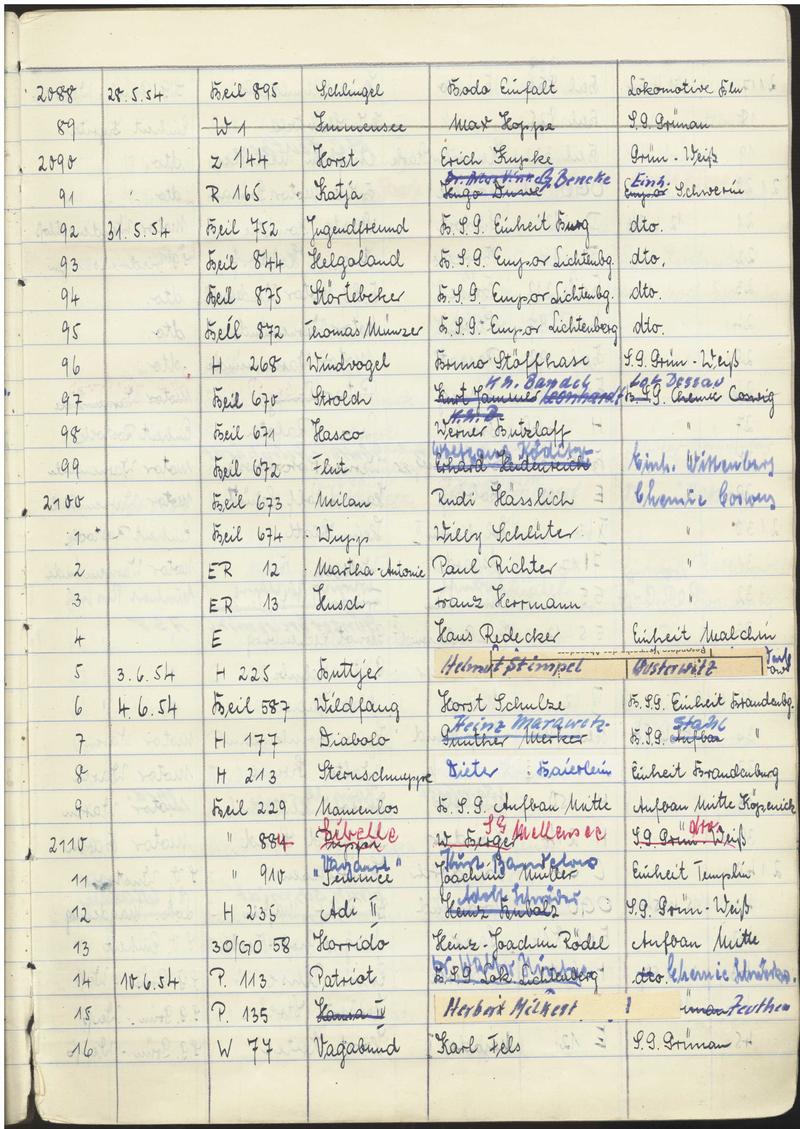 2088 28.5.54 Beil 895 Schlingel Bodo Einfalt Lokomotive Elm
89 W 1 Immensee Max Hoppe S.G. Grünau
2090 Z 144 Horst Erich Kupke Grün-Weiß
G. Bencke Einh.
91 R 165 Katja Hugo Empor Schwerin
92 31.5.54 Beil 752 Jugendfreund B.S.G. Einheit Burg dto.
93 Beil 844 Helgoland B.S.G. Empor Lichtenbg. dto.
94 Beil 875 Störtebeker B.S.G. Empor Lichtenbg. dto.
95 Beil 872 Thomas Münzer B.S.G. Empor Lichtenberg dto.
96 H 268 Windvogel Bruno Stöffhase S.G. Grün-Weiß
K.H. Bandel Lok Dessau
97 Beil 670 Strolch Kurt Leonhardt B.S.G. Chemie Coswig
K.H. B.
98 Beil 671 Hasco Werner Butzlaff "
Wolfgang
99 Beil 672 Flut Erhard Heidenreich Einh. Wittenberg
2100 Beil 673 Milan Rudi Hässlich Chemie Coswig
1 Beil 674 Wupp Willy Schlüter "
2 ER 12 Martha-Antonie Paul Richter "
3 ER 13 Husch Franz Herrmann "
4 E Hans Redecker Einheit Malchin
5 3.6.54 H 225 Buttjer Helmut Stimpel Wusterwitz
6 4.6.54 Beil 587 Wildfang Horst Schulze B.S.G. Einheit Brandenbg.
Heinz Marawitz Stahl
7 H 177 Diabolo Günther Merker B.S.G. Aufbau "
8 H 213 Sternschnuppe Dieter Baierlein Einheit Brandenburg
9 Beil 229 Namenlos B.S.G. Aufbau Mitte Aufbau Mitte Köpenick
Libelle SG Mellensee dto
2110 " 884 W. Berger S.G. Grün-Weiß
"Vagant" Kurt
11 " 910 Joachim Müller Einheit Templin
Adolf Schröder
12 H 235 Adi II Heinz S.G. Grün-Weiß
13 30/GO 58 Horrido Heinz-Joachim Rödel Aufbau Mitte
14 10.6.54 P. 113 Patriot B.S.G. Lok Lichtenberg dto. Chemie
15 P. 135 Hansa IV Herbert Milkert Zeuthen
16 W 77 Vagabund Karl Fels S.G. Grünau